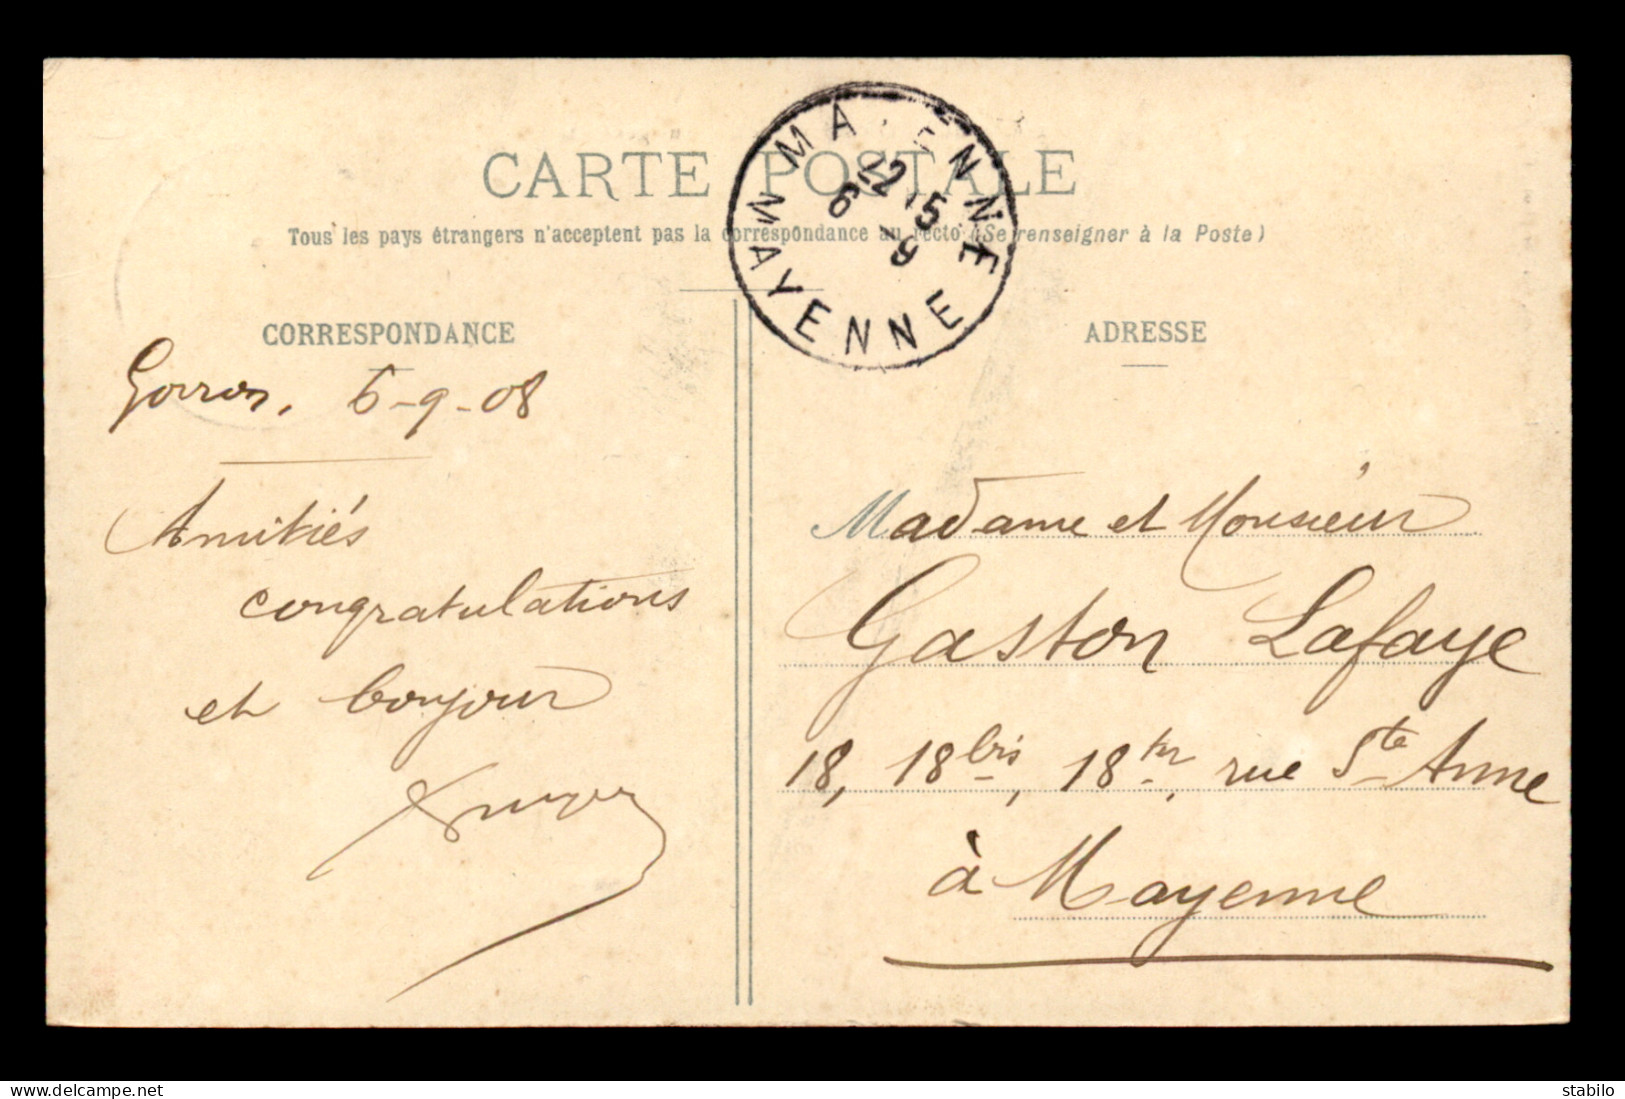 CARTE POSTALE
Tous les pays étrangers n'acceptent pas la correspondance au recto (Se renseigner à la Poste)
MAYENNE
12 15
6 9
MAYENNE
CORRESPONDANCE
ADRESSE
Gorron, 6-9-08
Amitiés
congratulations
et bonjour
Madame et Monsieur
Gaston Lafaye
18, 18 bis, 18 ter, rue Ste Anne
à Mayenne
www.delcampe.net
stabilo